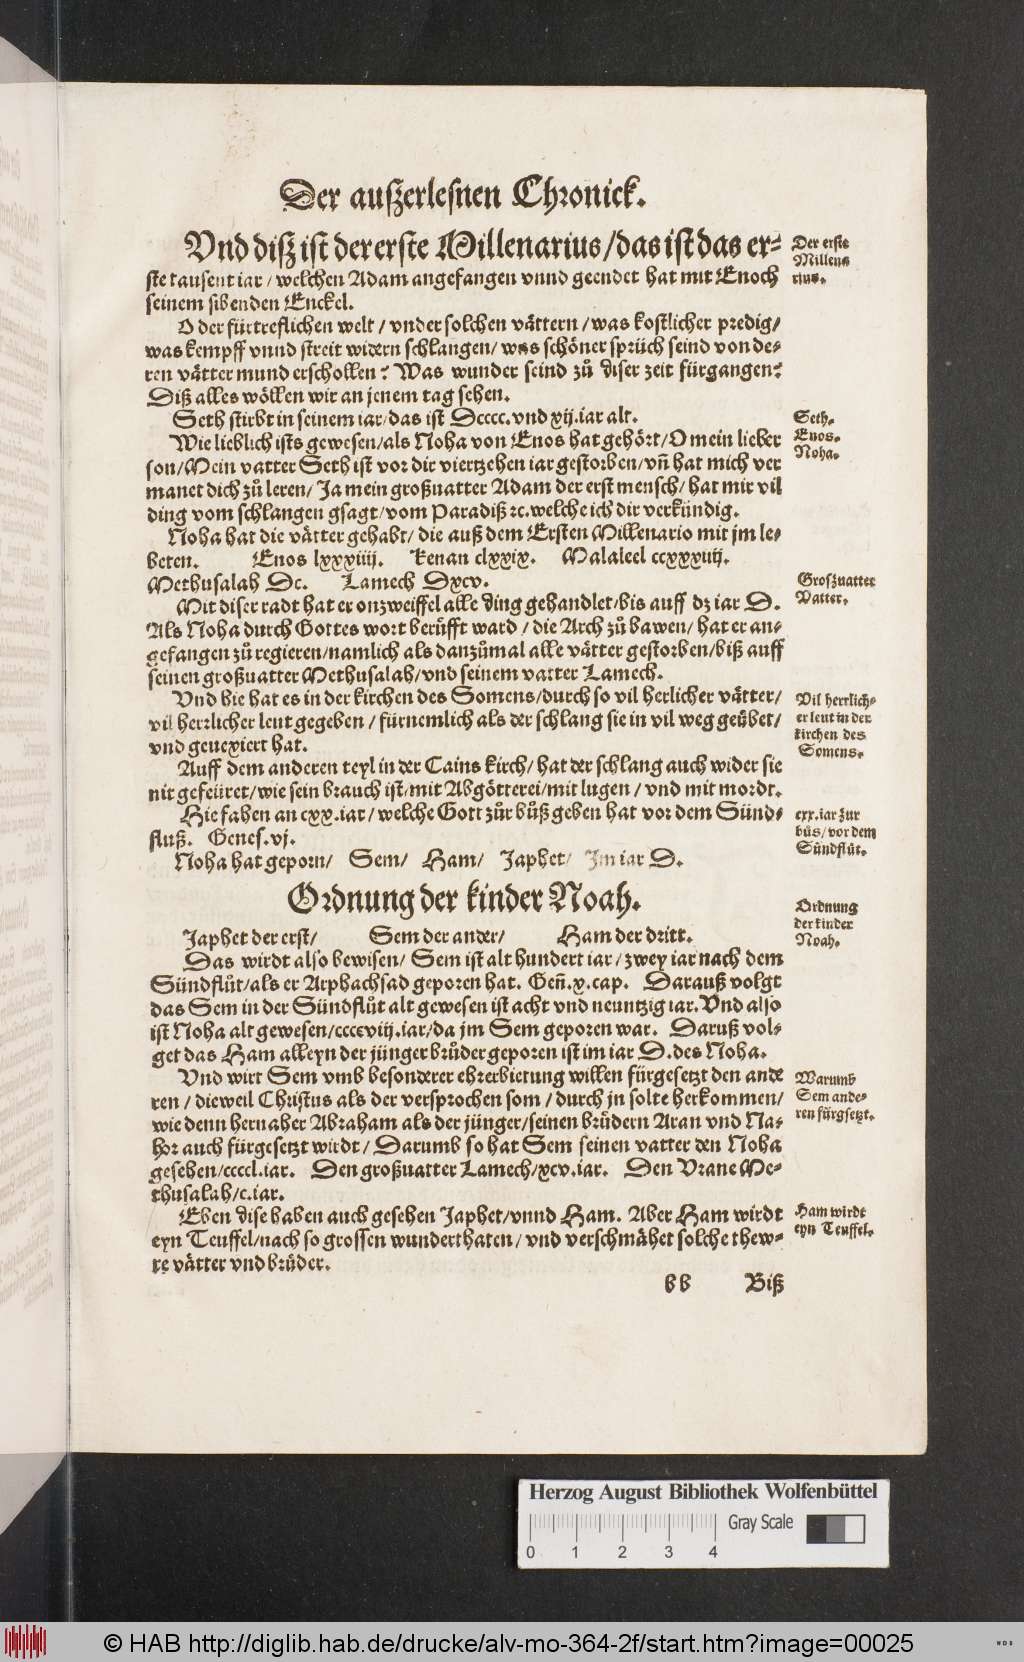 Der außzerlesnen Chronick.
Vnd disz ist der erste Millenarius/das ist das er-
ste tausent iar/welchen Adam angefangen vnnd geendet hat mit Enoch
seinem sibenden Enckel.
O der fürtreflichen welt/vnder solchen vättern/was kostlicher predig/
was kempff vnnd streit widern schlangen/was schöner sprüch seind von de-
ren vätter mund erschollen? Was wunder seind zů diser zeit fürgangen?
Diß alles wöllen wir an jenem tag sehen.
Seth stirbt in seinem iar/das ist Dcccc.vnd xij.iar alt.
Wie lieblich ists gewesen/als Noha von Enos hat gehört/O mein lieber
son/Mein vatter Seth ist vor dir viertzehen iar gestorben/vñ hat mich ver
manet dich zů leren/Ja mein großuatter Adam der erst mensch/hat mir vil
ding vom schlangen gsagt/vom Paradiß ꝛc.welche ich dir verkündig.
Noha hat die vätter gehabt/die auß dem Ersten Millenario mit jm le-
beten. Enos lxxxiiij. Kenan clxxix. Malaleel ccxxxiiij.
Methusalah Dc. Lamech Dxcv.
Mit diser radt hat er onzweiffel alle ding gehandlet/bis auff dz iar D.
Als Noha durch Gottes wort berüfft ward/die Arch zů bawen/hat er an-
gefangen zů regieren/namlich als danzůmal alle vätter gestorben/biß auff
seinen großuatter Methusalah/vnd seinem vatter Lamech.
Vnd hie hat es in der kirchen des Somens/durch so vil herlicher vätter/
vil herrlicher leut gegeben/fürnemlich als der schlang sie in vil weg geübet/
vnd geuexiert hat.
Auff dem anderen teyl in der Cains kirch/hat der schlang auch wider sie
nit gefeüret/wie sein brauch ist/mit Abgötterei/mit lugen/vnd mit mordt.
Hie fahen an cxx.iar/welche Gott zůr bůß geben hat vor dem Sünd-
fluß. Genes.vj.
Noha hat geporn/ Sem/ Ham/ Japhet/ Im iar D.
Ordnung der kinder Noah.
Japhet der erst/ Sem der ander/ Ham der dritt.
Das wirdt also bewisen/Sem ist alt hundert iar/zwey iar nach dem
Sündflůt/als er Arphachsad geporen hat. Geñ.x.cap. Darauß volgt
das Sem in der Sündflůt alt gewesen ist acht vnd neuntzig iar.Vnd also
ist Noha alt gewesen/ccccviij.iar/da jm Sem geporen war. Daruß vol-
get das Ham alleyn der jünger brůder geporen ist im iar D.des Noha.
Vnd wirt Sem vmb besonderer ehrerbietung willen fürgesetzt den ande
ren/dieweil Christus als der versprochen som/durch jn solte herkommen/
wie denn hernaher Abraham als der jünger/seinen brüdern Aran vnd Na-
hor auch fürgesetzt wirdt/Darumb so hat Sem seinen vatter den Noha
gesehen/ccccl.iar. Den großuatter Lamech/xcv.iar. Den Vrane Me-
thusalah/c.iar.
Eben dise haben auch gesehen Japhet/vnnd Ham. Aber Ham wirdt
eyn Teuffel/nach so grossen wunderthaten/vnd verschmähet solche thew-
re vätter vnd brüder.
bb Biß
Der erste
Millena
rius.
Seth.
Enos.
Noha.
Groszuatter
Vatter.
Vil herrlich-
er leut in der
kirchen des
Somens.
cxx.iar zur
bůs/vor dem
Sündflůt.
Ordnung
der kinder
Noah.
Warumb
Sem ande-
ren fürgsetzt.
Ham wirdt
eyn Teuffel.
Herzog August Bibliothek Wolfenbüttel
Gray Scale
0 1 2 3 4
© HAB http://diglib.hab.de/drucke/alv-mo-364-2f/start.htm?image=00025